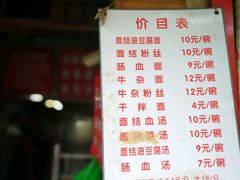 价目表
面结油豆腐面 10元/碗
面结粉丝 10元/碗
肠血面 9元/碗
牛杂面 12元/碗
牛杂粉丝 12元/碗
干拌面 4元/碗
面结血汤 10元/碗
面 汤 10元/碗
面结油豆腐汤 9元/碗
肠血汤 7元/碗